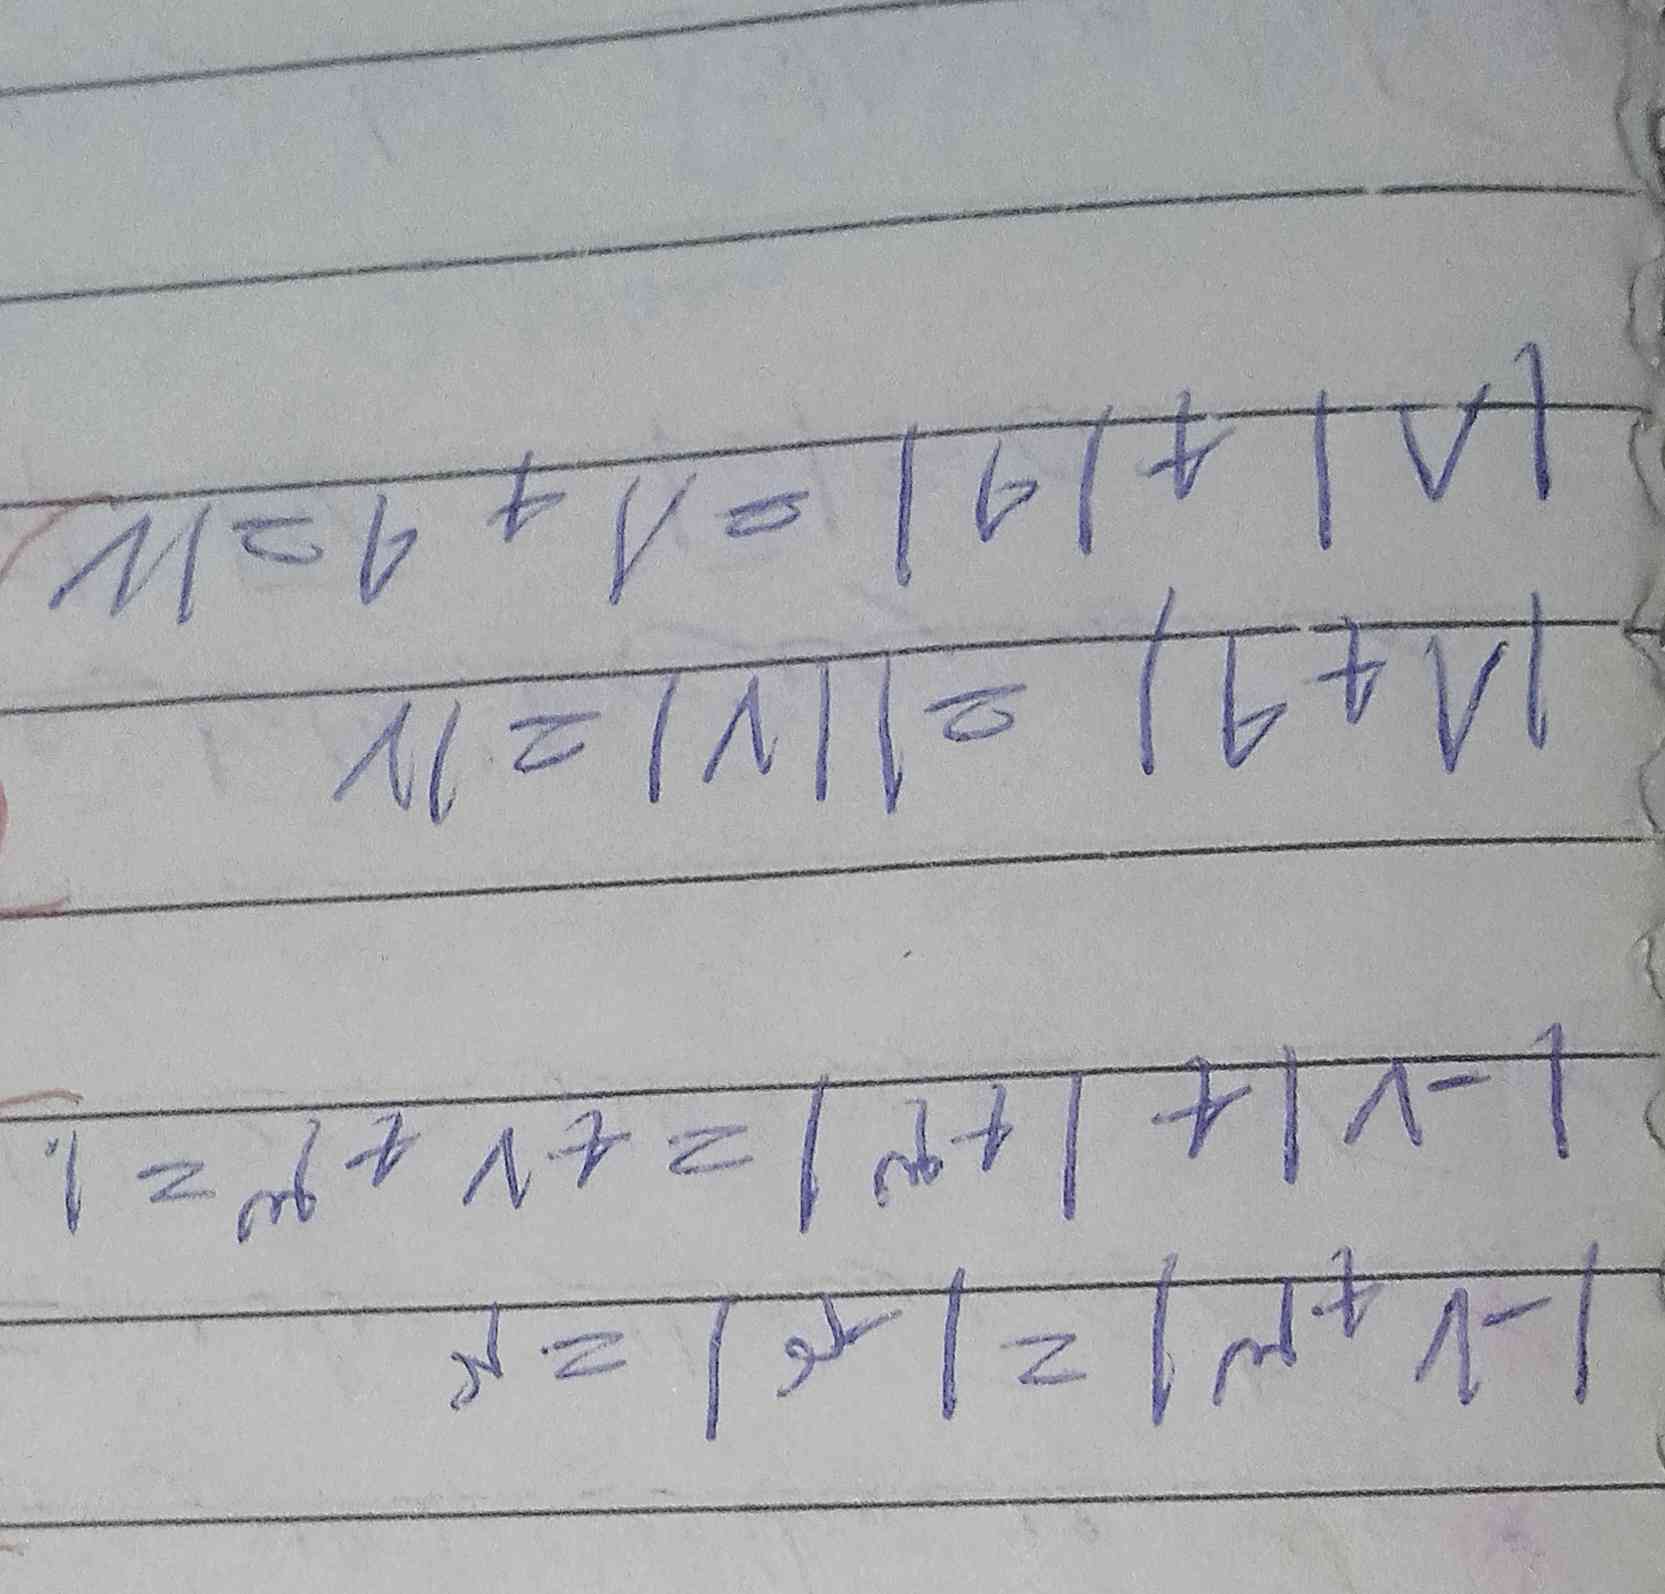 |-۷+۳| = |-۴| = ۴
|-۷|+|+۳| = +۷+۳ = ۱۰
|۸+۹| = |۱۷| = ۱۷
|۸|+|۹| = ۸+۹ = ۱۷